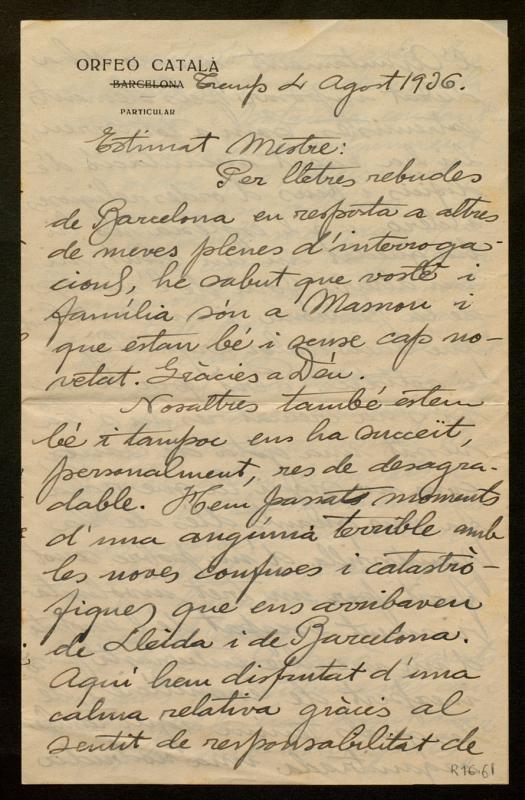 ORFEÓ CATALÀ
BARCELONA
PARTICULAR
Tremp 4 Agost 1936.
Estimat Mestre:
Per lletres rebudes
de Barcelona en resposta a altres
de meves plenes d'interroga-
cions, he sabut que vostè i
família són a Masnou i
que estan bé i sense cap no-
vetat. Gràcies a Déu.
Nosaltres també estem
bé i tampoc ens ha succeït,
personalment, res de desagra-
dable. Hem passats moments
d'una angúnia terrible amb
les noves confuses i catastrò-
fiques que ens arribaven
de Lleida i de Barcelona.
Aquí hem disfrutat d'una
calma relativa gràcies al
sentit de responsabilitat de
R16.61